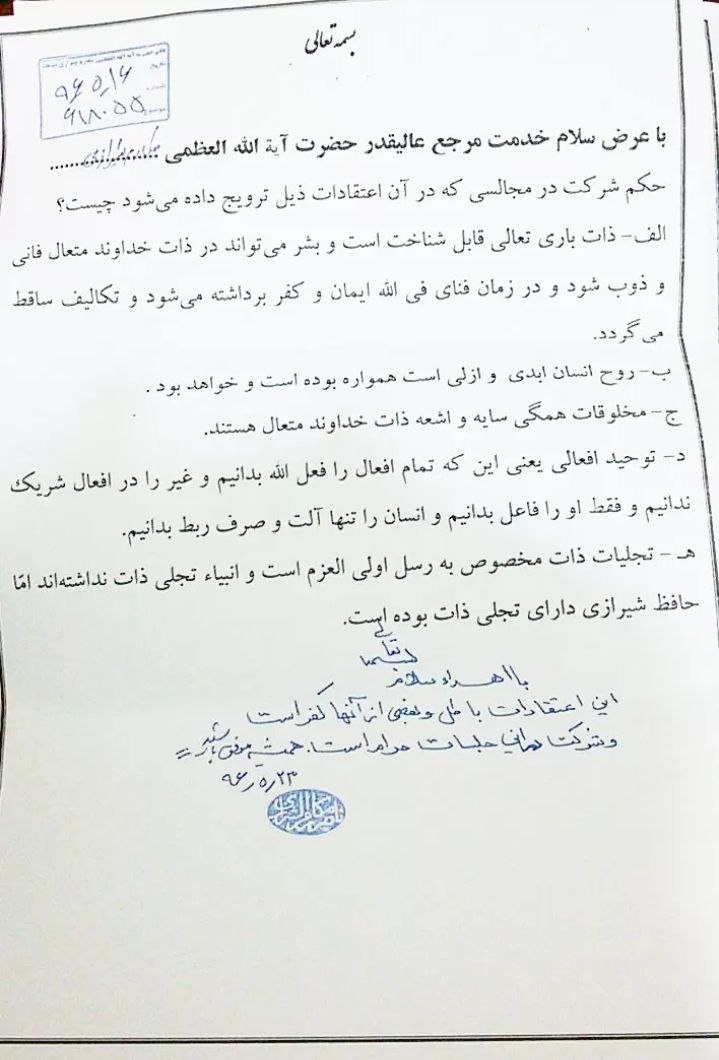 بسمه تعالی
دفتر حضرت آیة الله العظمی مکارم شیرازی
تاریخ
۹۶/۵/۱۶
شماره
۹۱۸۰۵۵
با عرض سلام خدمت مرجع عالیقدر حضرت آیة الله العظمی مکارم شیرازی
حکم شرکت در مجالسی که در آن اعتقادات ذیل ترویج داده می‌شود چیست؟
الف- ذات باری تعالی قابل شناخت است و بشر می‌تواند در ذات خداوند متعال فانی
و ذوب شود و در زمان فنای فی الله ایمان و کفر برداشته می‌شود و تکالیف ساقط
می‌گردد.
ب- روح انسان ابدی و ازلی است همواره بوده است و خواهد بود .
ج- مخلوقات همگی سایه و اشعه ذات خداوند متعال هستند.
د- توحید افعالی یعنی این که تمام افعال را فعل الله بدانیم و غیر را در افعال شریک
ندانیم و فقط او را فاعل بدانیم و انسان را تنها آلت و صرف ربط بدانیم.
هـ - تجلیات ذات مخصوص به رسل اولی العزم است و انبیاء تجلی ذات نداشته‌اند امّا
حافظ شیرازی دارای تجلی ذات بوده است.
بسمه تعالی
با اهداء سلام
این اعتقادات باطل و بعضی از آنها کفر است
و شرکت در این جلسات حرام است. همیشه موفق باشید
۹۶/۵/۲۳